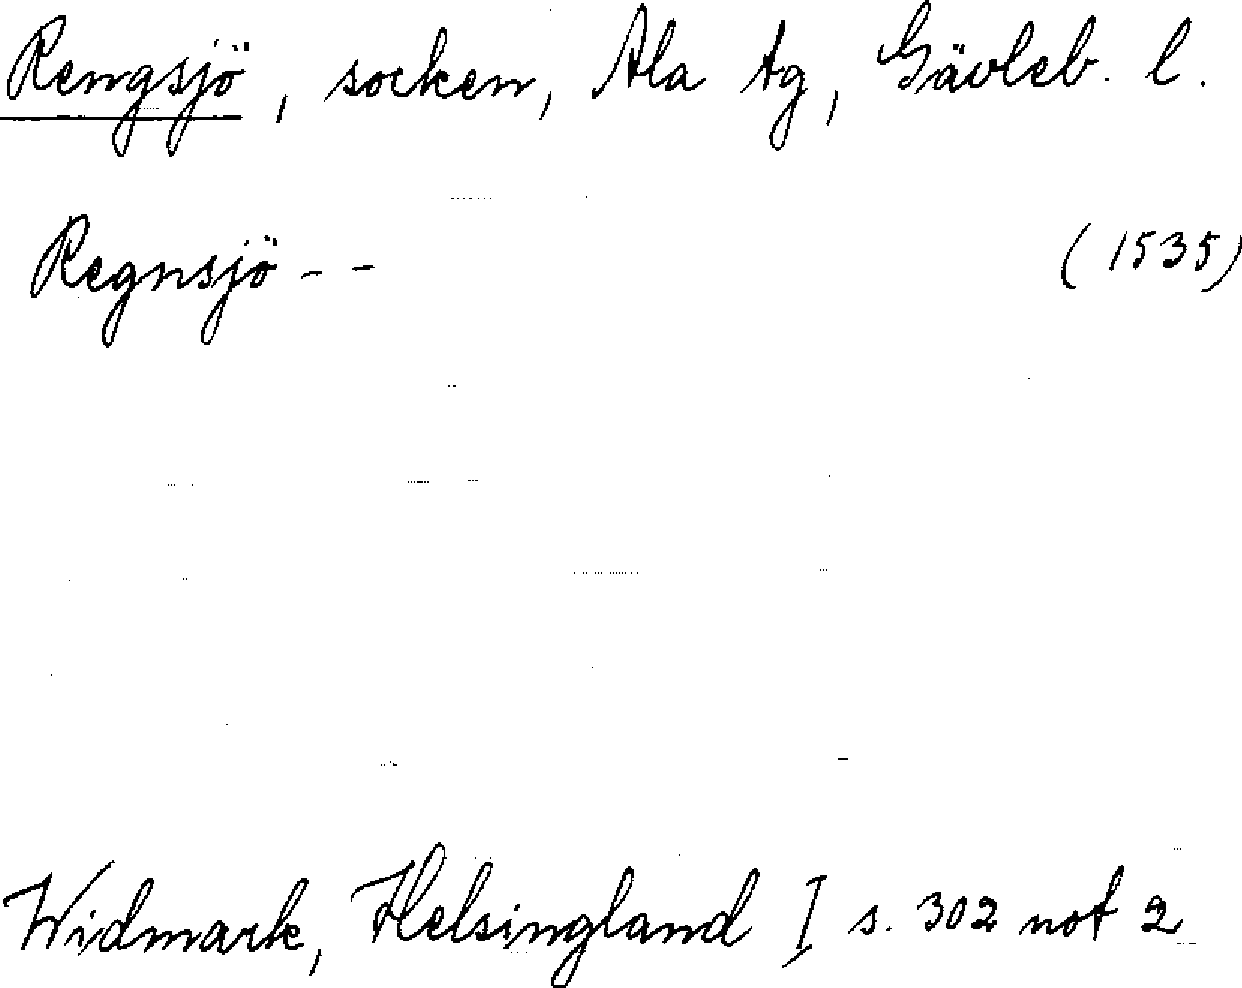 Rengsjö, socken, Ala tg, Gävleb. l.
Regnsjö - - (1535)
Widmark, Helsingland I s. 302 not 2